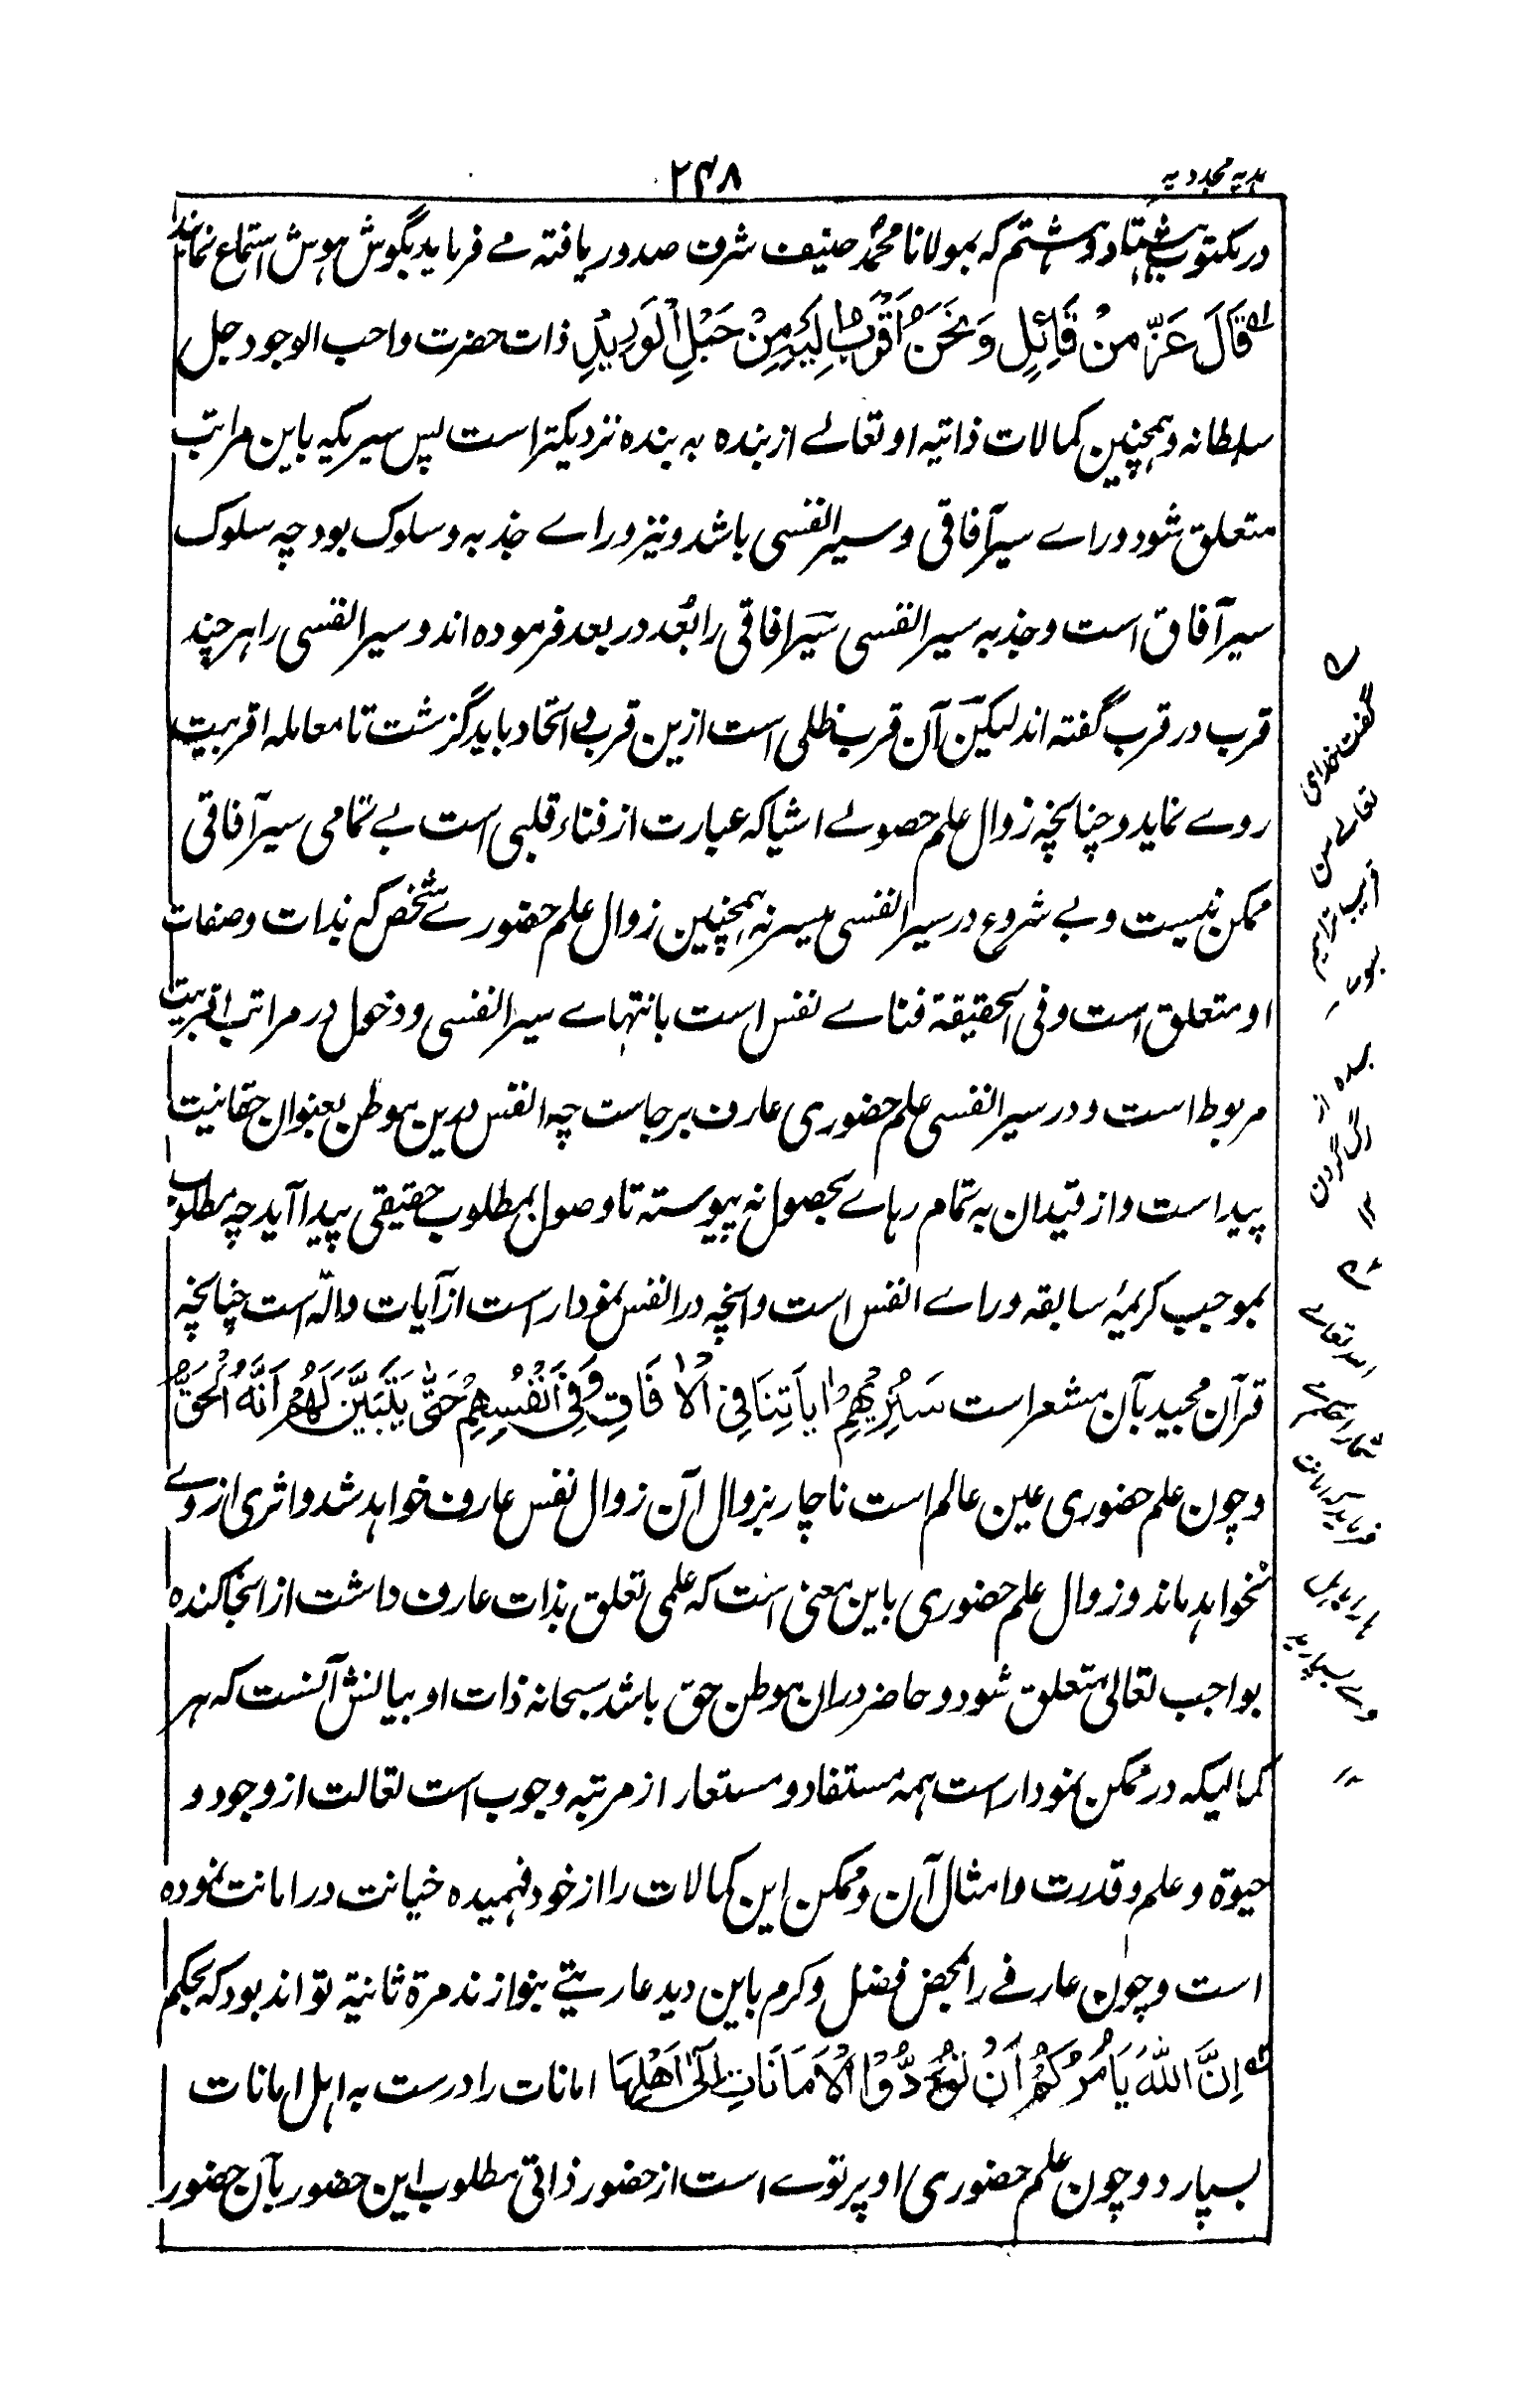 ہدیہ مجددیہ
۲۴۸
در مکتوب ہشتاد و ہشتم کہ بمولانا محمد حنیف شرف صدور یافتہ مے فرماید بگوش ہوش استماع نمایند
قَالَ عَزَّ مِنْ قَائِلٍ وَنَحْنُ اَقْرَبُ اِلَیْہِ مِنْ حَبْلِ الْوَرِیْدِ ذات حضرت واجب الوجود جل
سلطانہ و ہمچنین کمالات ذاتیہ او تعالے از بندہ بہ بندہ نزدیکتر است پس سیریکہ باین مراتب
متعلق شود وراے سیر آفاقی و سیر انفسی باشد و نیز وراے جذبہ و سلوک بود چہ سلوک
سیر آفاق است و جذبہ سیر انفسی سیر افاقی را بُعد در بعد فرمودہ اند و سیر انفسی را ہر چند
قرب در قرب گفتہ اند لیکن آن قرب ظلی است ازین قرب و اتحاد باید گزشت تا معاملہ اقربیت
روے نماید و چنانچہ زوال علم حصولے اشیا کہ عبارت از فناء قلبی است بے تمامی سیر آفاقی
ممکن نیست و بے شروع در سیر انفسی میسر نہ ہمچنین زوال علم حضورے شخص کہ بذات و صفات
او متعلق است و فی الحقیقۃ فناے نفس است بانتہاے سیر انفسی و دخول در مراتب اقربیت
مربوط است و در سیر انفسی علم حضوری عارف بر جاست چہ انفس درین موطن بعنوان حقانیت
پیداست و از قید ان بہ تمام رہاے بحصول نہ پیوستہ تا وصول بمطلوب حقیقی پیدا آید چہ مطلوب
بموجب کریمۂ سابقہ وراے انفس است و انچہ در انفس نمودار است از آیات دالّہ است چنانچہ
قرآن مجید بآن مشعر است سَنُرِیْہِمْ اٰیَاتِنَا فِی الْاٰفَاقِ وَفِیْ اَنْفُسِہِمْ حَتّٰی یَتَبَیَّنَ لَہُمْ اَنَّہُ الْحَقُّ
و چون علم حضوری عین عالم است ناچار بزوال آن زوال نفس عارف خواہد شد و اثری از وے
نخواہد ماند و زوال علم حضوری باین معنی است کہ علمی تعلق بذات عارف داشت از انجا کندہ
بواجب تعالیٰ متعلق شود و حاضر دران موطن حق باشد سبحانہ ذات او بیانش آنست کہ ہر
کمالیکہ در ممکن نمودار است ہمہ مستفاد و مستعار از مرتبہ وجوب است تعالت از وجود و
حیوۃ و علم و قدرت و امثال آن و ممکن این کمالات را از خود فہمیدہ خیانت در امانت نمودہ
است و چون عارفے را بمحض فضل و کرم باین دید عاریتے بنوازند مرۃ ثانیۃ تواند بود کہ بحکم
اِنَّ اللّٰہَ یَاْمُرُکُمْ اَنْ تُؤَدُّوا الْاَمَانَاتِ اِلٰی اَہْلِہَا امانات را درست بہ اہل امانات
بسپارد و چون علم حضوری او پرتوے است از حضور ذاتی مطلوب این حضور بآن حضور
گفت خدای
تعالے من
قریب ترایم
بسوی
بندہ از
رگ گردن
۱۲
اللہ تعالے
شمارا حکم
فرماید کہ امانت
۱۲